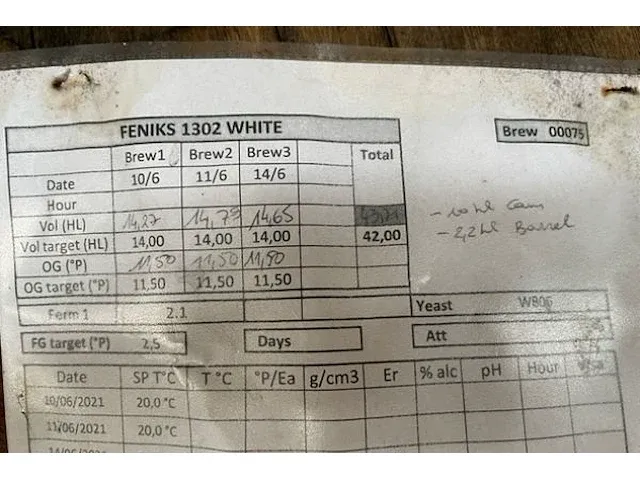 FENIKS 1302 WHITE
Brew 00075
Brew1 Brew2 Brew3 Total
Date 10/6 11/6 14/6
Hour
Vol (HL) 14,27 14,79 14,65
Vol target (HL) 14,00 14,00 14,00 42,00
OG (°P) 11,50 11,50
OG target (°P) 11,50 11,50 11,50
- 2,2 hl Barrel
Ferm 1 2.1
Yeast
FG target (°P) 2,5 Days Att
Date SP T°C T °C °P/Ea g/cm3 Er % alc pH Hour
10/06/2021 20,0 °C
11/06/2021 20,0 °C